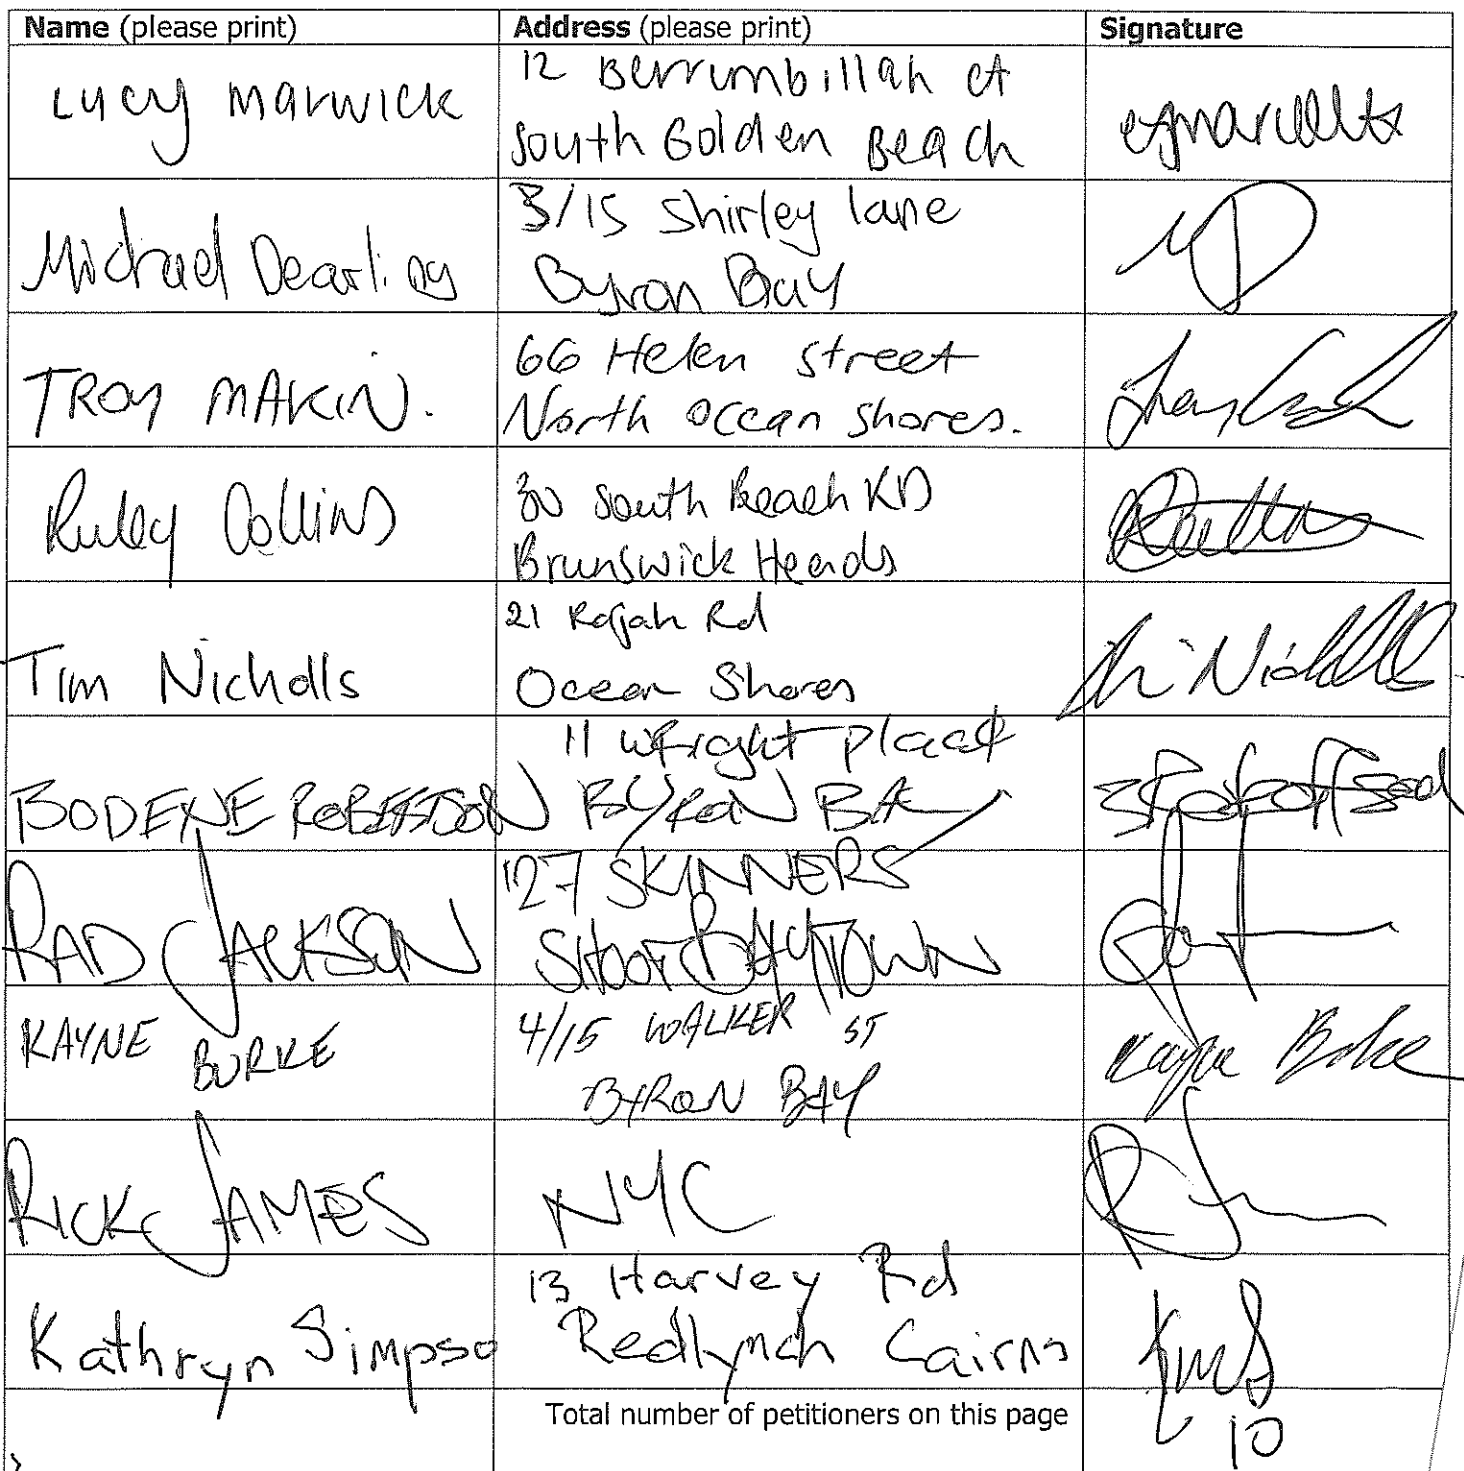 Name (please print) Address (please print) Signature
Lucy Marwick
12 Berrimbillah ct
South Golden Beach
Michael Dearling
3/15 Shirley lane
Byron Bay
MD
TROY MAKIN.
66 Helen street
North Ocean Shores.
Ruley Collins
30 South Beach RD
Brunswick Heads
Tim Nicholls
21 Rajah Rd
Ocean Shores
Tim Nicholls
BODENE ROBERTSON
11 wright place
BYRON BAY
RAD JACKSON
127 SKINNERS
SHOOT BAYTOWN
KAYNE BURKE
4/15 WALKER ST
BYRON BAY
Kayne Burke
RICK JAMES
NYC
Kathryn Simpso
13 Harvey Rd
Redlynch Cairns
Total number of petitioners on this page
10